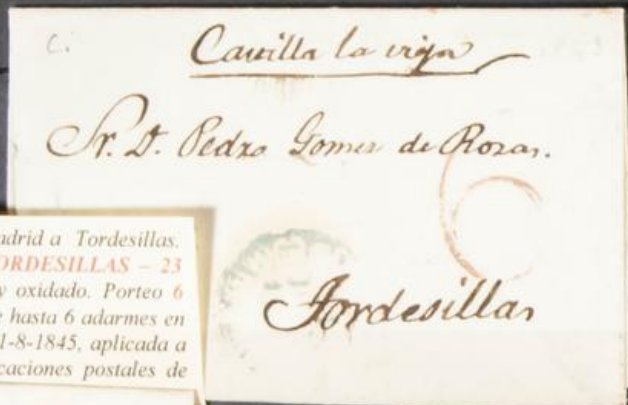 C.
Castilla la vieja
Sr. D. Pedro Gomez de Rozas.
6
Tordesillas
adrid a Tordesillas.
ORDESILLAS – 23
y oxidado. Porteo 6
e hasta 6 adarmes en
1-8-1845, aplicada a
caciones postales de